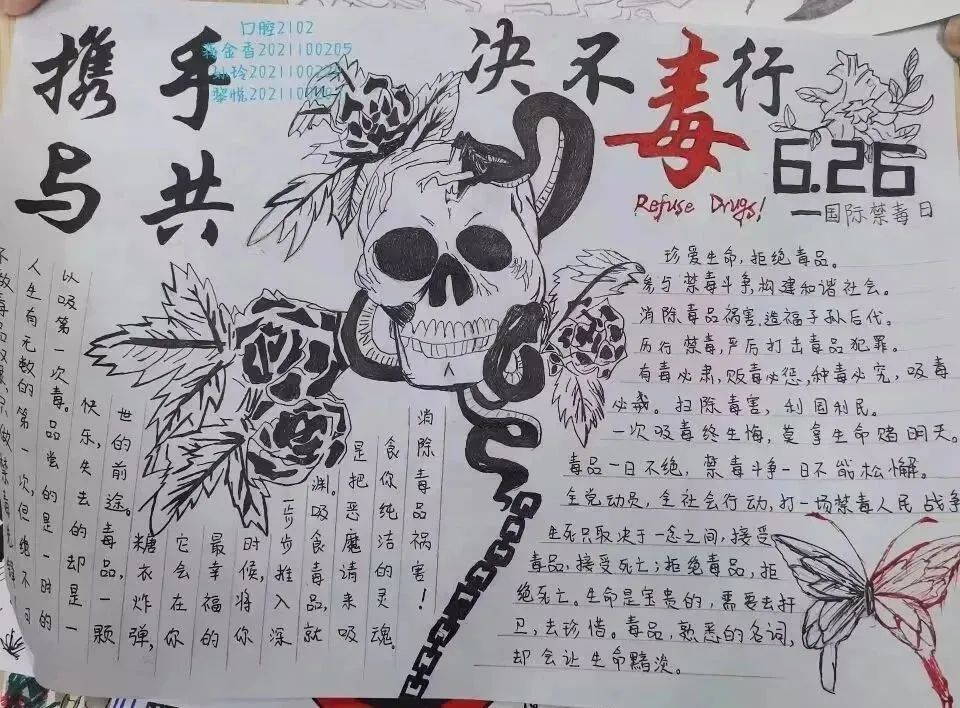 携手
与共
决不毒行
口腔2102
金香2021100205
玲20211002
黎悦2021100
6.26
Refuse Drugs!
—国际禁毒日
不做毒品
人生有无数的第一次,但绝不可
以吸第一次毒。品尝的是一时的
快乐,失去的却是一
世的前途。毒品,一颗
糖衣炸弹,
它会在你
最幸福的
时候,将你
一步步推入深
渊。吸食毒品,就
是把恶魔请来吸
食你纯洁的灵魂。
消除毒品祸害!
珍爱生命,拒绝毒品。
参与禁毒斗争,构建和谐社会。
消除毒品祸害,造福子孙后代。
历行禁毒,严厉打击毒品犯罪。
有毒必肃,贩毒必惩,种毒必究,吸毒
必戒。扫除毒害,利国利民。
一次吸毒终生悔,莫拿生命赌明天。
毒品一日不绝,禁毒斗争一日不能松懈。
全党动员,全社会行动,打一场禁毒人民战争
生死只取决于一念之间,接受
毒品,接受死亡;拒绝毒品,拒
绝死亡。生命是宝贵的,需要去捍
卫,去珍惜。毒品,熟悉的名词,
却会让生命黯淡。